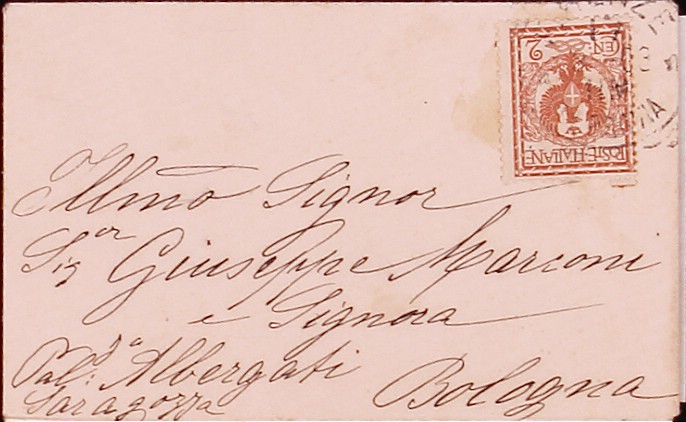 CEN. 2
POSTE ITALIANE
Illmo Signor
Sigor Giuseppe Marconi
e Signora
Palza: Albergati
Saragozza
Bologna